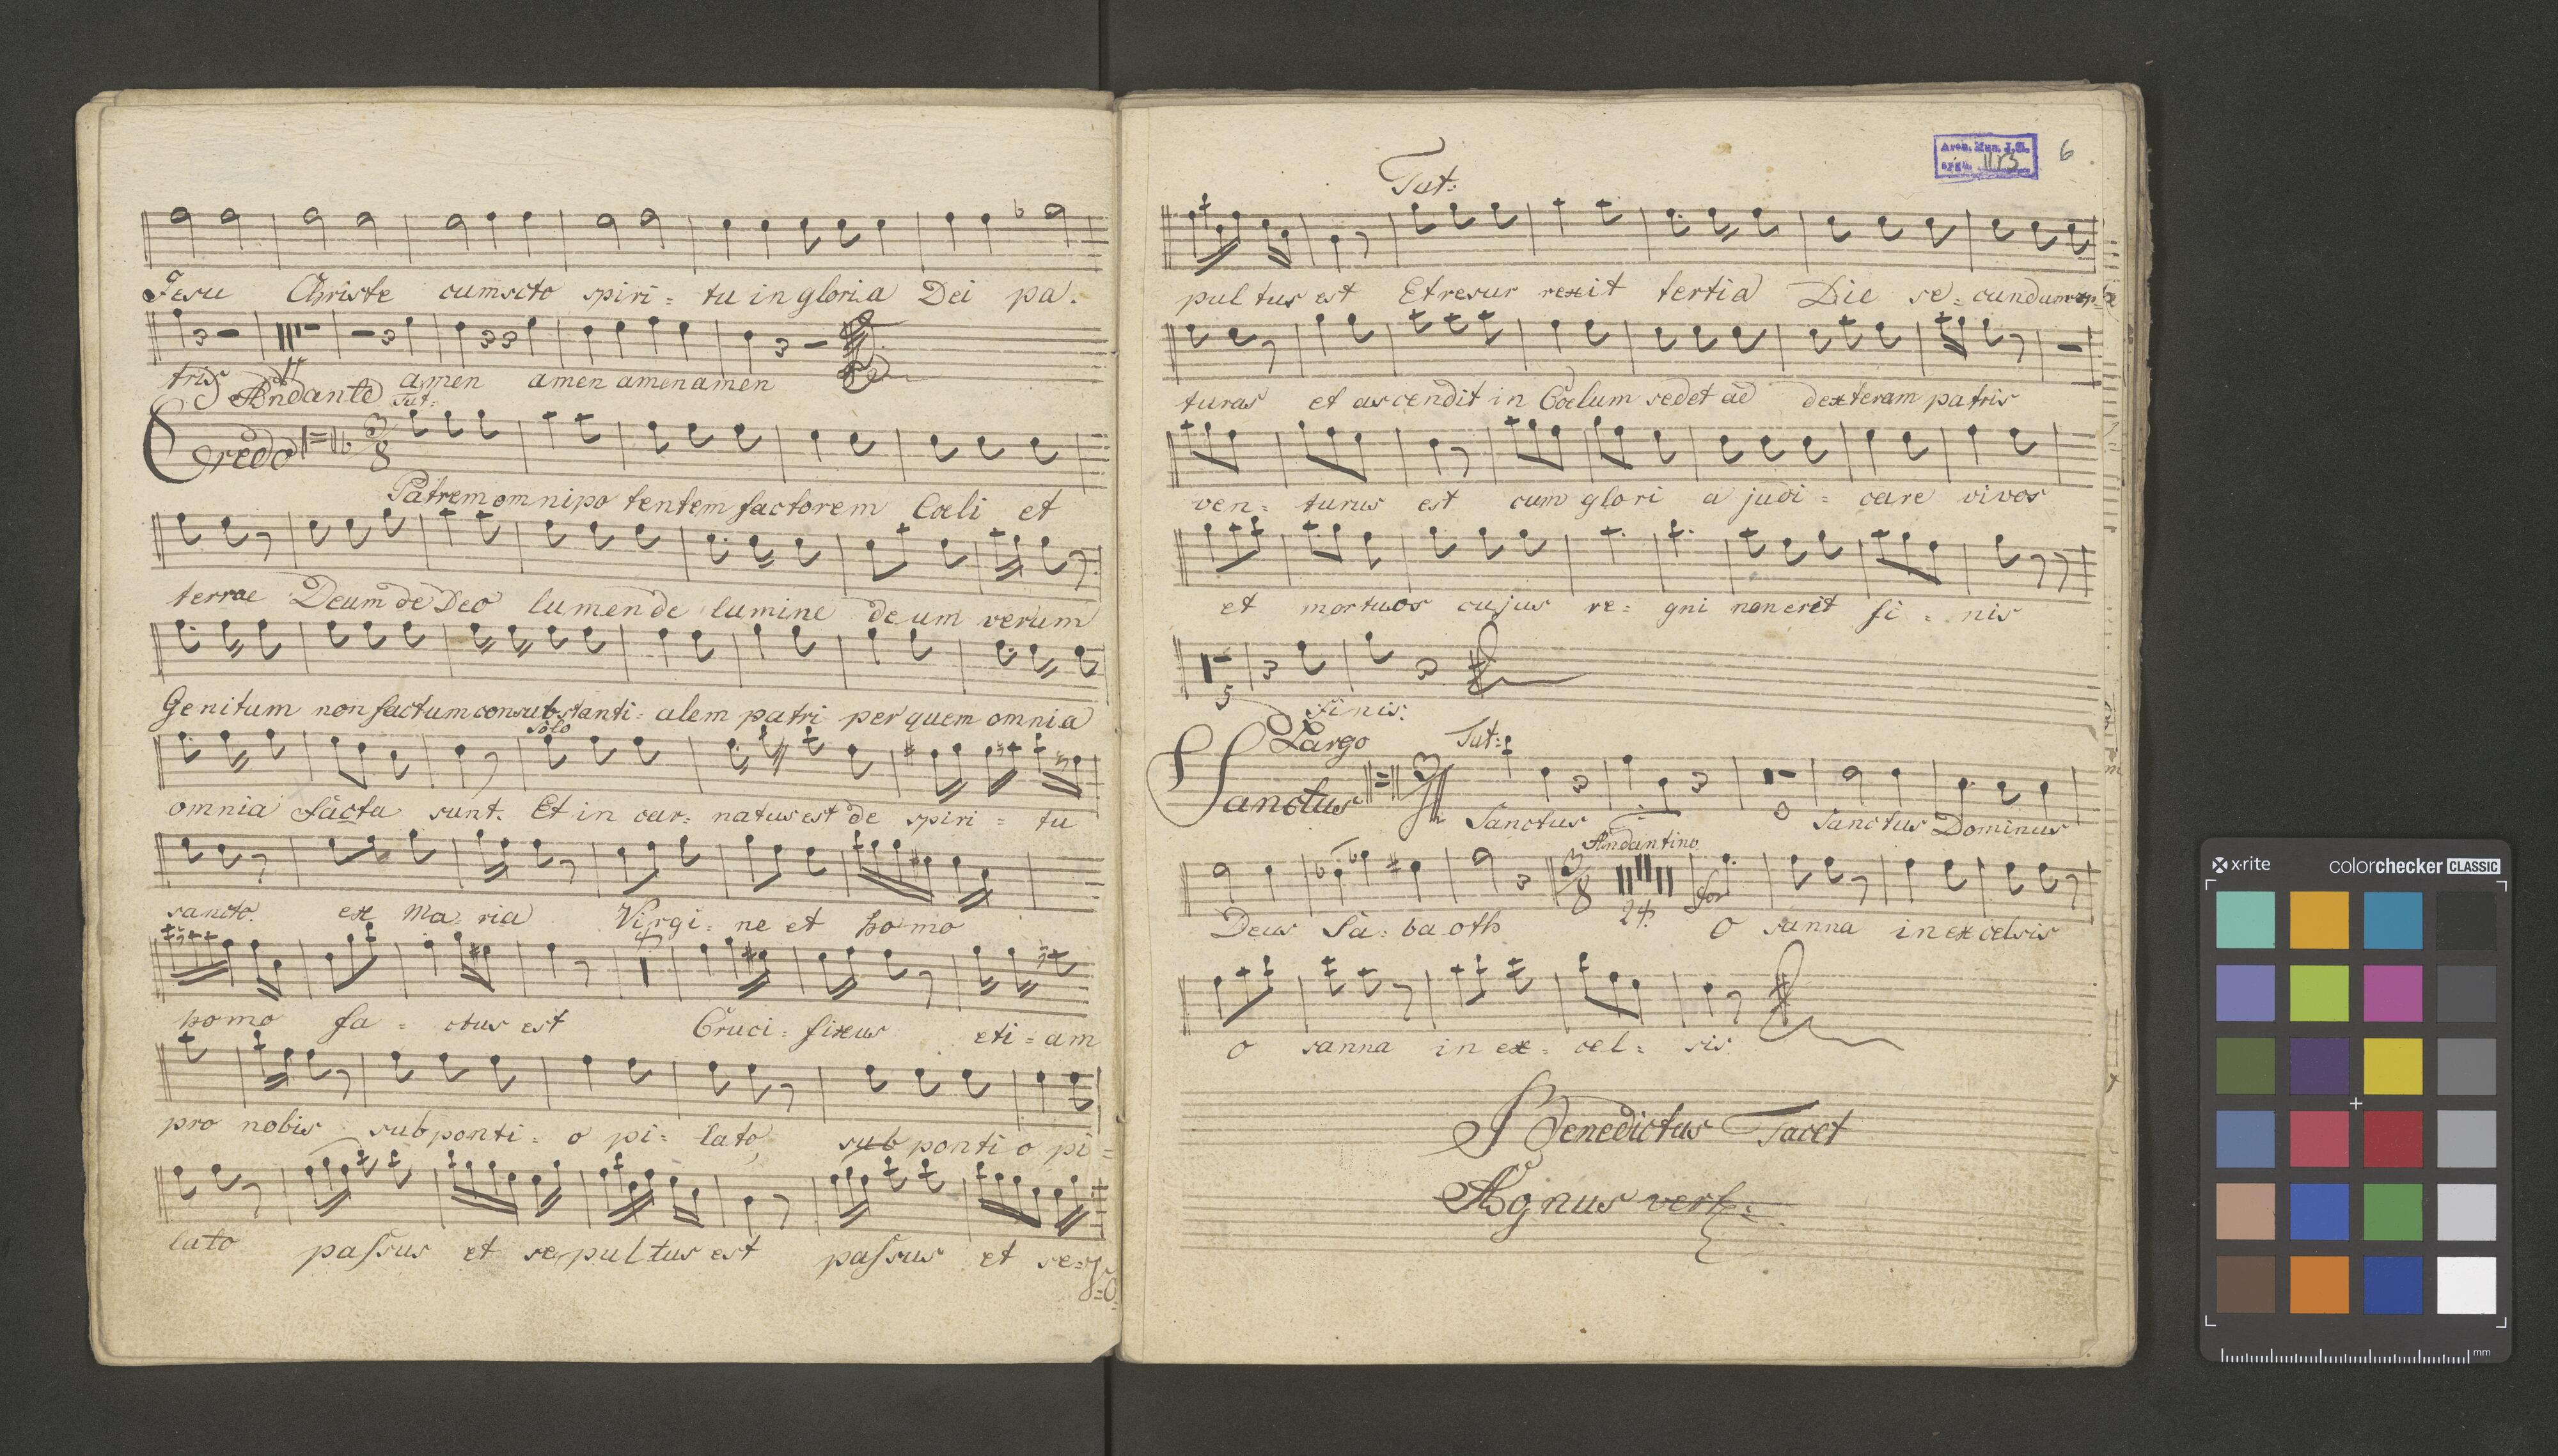 Jesu Christe cum scto spiri = tu in gloria Dei pa.
tris amen amen amen amen
Andante Tut:
Credo 3/8
Patrem omnipo tentem factorem Cœli et
terrae Deum de Deo lumen de lumine deum verum
Genitum non factum consubstanti = alem patri per quem omnia
solo
omnia facta sunt. Et in car = natus est de spiri = tu
sancto. ex Ma = ria Virgi = ne et homo
homo fa = ctus est Cruci = fixus eti = am
pro nobis sub ponti = o pi = lato, sub ponti o pi =
lato paſsus et se pul tus est paſsus et se =
Arch. Mus. J.G.
sygn. 1173
6
Tut:
pul tus est Et resur rexit tertia Die se = cundum
turas et ascendit in Cœlum sedet ad dexteram patris
ven = turus est cum glori a judi = care vivos
et mortuos cujus re = gni non erit fi = nis
5 finis.
Largo Tut:
Sanctus Sanctus Sanctus Dominus
Andantino
3/8 24. for
Deus Sa = ba oth O sanna in ex celsis
O sanna in ex = cel = sis
Benedictus Tacet
Agnus vert:
x·rite colorchecker CLASSIC
mm